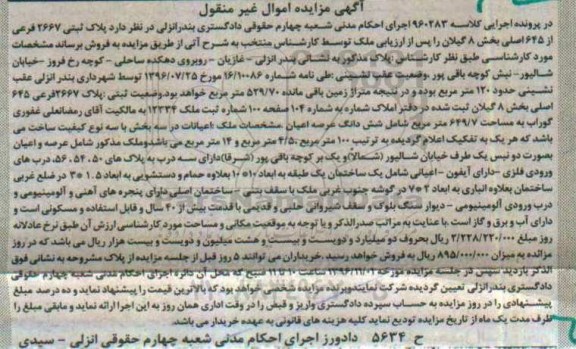 آگهی مزایده اموال غیر منقول
در پرونده اجرایی کلاسه ۹۶۰۲۸۳ اجرای احکام مدنی شعبه چهارم حقوقی دادگستری بندرانزلی در نظر دارد پلاک ثبتی ۲۶۶۷ فرعی
از ۶۴۵ اصلی بخش ۸ گیلان را پس از ارزیابی ملک توسط کارشناس منتخب به شرح آتی از طریق مزایده به فروش برساند مشخصات
مورد کارشناسی طبق نظر کارشناس :پلاک مذکور به نشانی بندر انزلی - غازیان - روبروی دهکده ساحلی - کوچه رخ فروز -خیابان
شالیور- نبش کوچه باقی پور .وضعیت عقب نشینی :طی نامه شماره ۱۶/۱۰۰۸۶ مورخ ۱۳۹۶/۰۷/۲۵ توسط شهرداری بندر انزلی عقب
نشینی حدود ۱۲۰ متر مربع بوده و در نتیجه متراژ زمین باقی مانده ۵۲۹/۷۰ متر مربع خواهد بود.وضعیت ثبتی :پلاک ۲۶۶۷فرعی ۶۴۵
اصلی بخش ۸ گیلان ثبت شده در دفتر املاک شماره ۱۰۴ صفحه ۱۰۰ شماره ثبت ملک ۱۲۳۳۴ به مالکیت آقای رمضانعلی غفوری
گوراب به مساحت ۶۴۹/۷ متر مربع شامل شش دانگ عرصه اعیان .مشخصات ملک :اعیانات در سه بخش با سه نوع کیفیت ساخت می
باشد که هر یک به تفکیک اعلام گردیده به ترتیب ۱۰۰ متر مربع ،۴/۵ متر مربع و ۱۴ متر مربع می باشدوملک مذکور شامل عرصه و اعیان
بصورت دو نبش یک طرف خیابان شالیپور (شمالا)و یک بر کوچه باقی پور (شرقا)دارای سه درب به پلاک های ۵۰، ۵۴، ۵۶، درب های
ورودی فلزی -دارای آیفون -اعیانی شامل یک ساختمان یک طبقه به ابعاد ۱۰*۱۰ بعلاوه حمام و دستشویی به ابعاد ۱.۵ *۳ در ضلع غربی
ساختمان بعلاوه انباری به ابعاد ۲*۷ در گوشه جنوب غربی ملک با سقف - ساختمان اصلی دارای پنجره های آهنی و آلومینیومی و
درب ورودی آلومینیومی - دیوار سنگ بلوک و سقف شیروانی حلبی و قدیمی با قدمت بیش از ۴۰ سال و قابل استفاده و مسکونی است و
دارای آب و برق و گاز است .با عنایت به مراتب صدرالذکر و با توجه به موقعیت مکانی و مساحت مورد کارشناسی ارزش آن طبق نرخ عادلانه
روز مبلغ ۲/۲۲۸/۲۲۰/۰۰۰ ریال بحروف دو میلیارد و دویست و بیست و هشت میلیون و دویست و بیست هزار ریال می باشد. که در روز
مزانده به میزان ۸۹۵/۰۰۰/۰۰۰ ریال به فروش خواهد رسید .خریداران می توانند ۵ روز قبل از جلسه مزایده از پلاک مشروحه به نشانی فوق
الذکر بازدید سپس در جلسه مزایده مورخه ۱۳۹۶/۱۱/۰۲ ساعت ۱۰ تا ۱۱ صبح که محل آن دائره اجرای احکام مدنی شعبه چهارم حقوقی
دادگستری بندرانزلی تعیین گردیده شرکت نمایندوبرنده مزایده شخصی خواهد بود که بالاترین قیمت را پیشنهاد نماید و ده درصد مبلغ
پیشنهادی را در روز مزایده به حساب سپرده دادگستری واریز و قبض را در وقت اداری همان روز به این اجرا ارائه نماید و مابقی مبلغ را
ظرف مدت یک ماه از تاریخ مزایده تودیع نماید کلیه هزینه های قانونی به عهده خریدار می باشد.
ح ۵۶۳۴ دادورز اجرای احکام مدنی شعبه چهارم حقوقی انزلی - سیدی